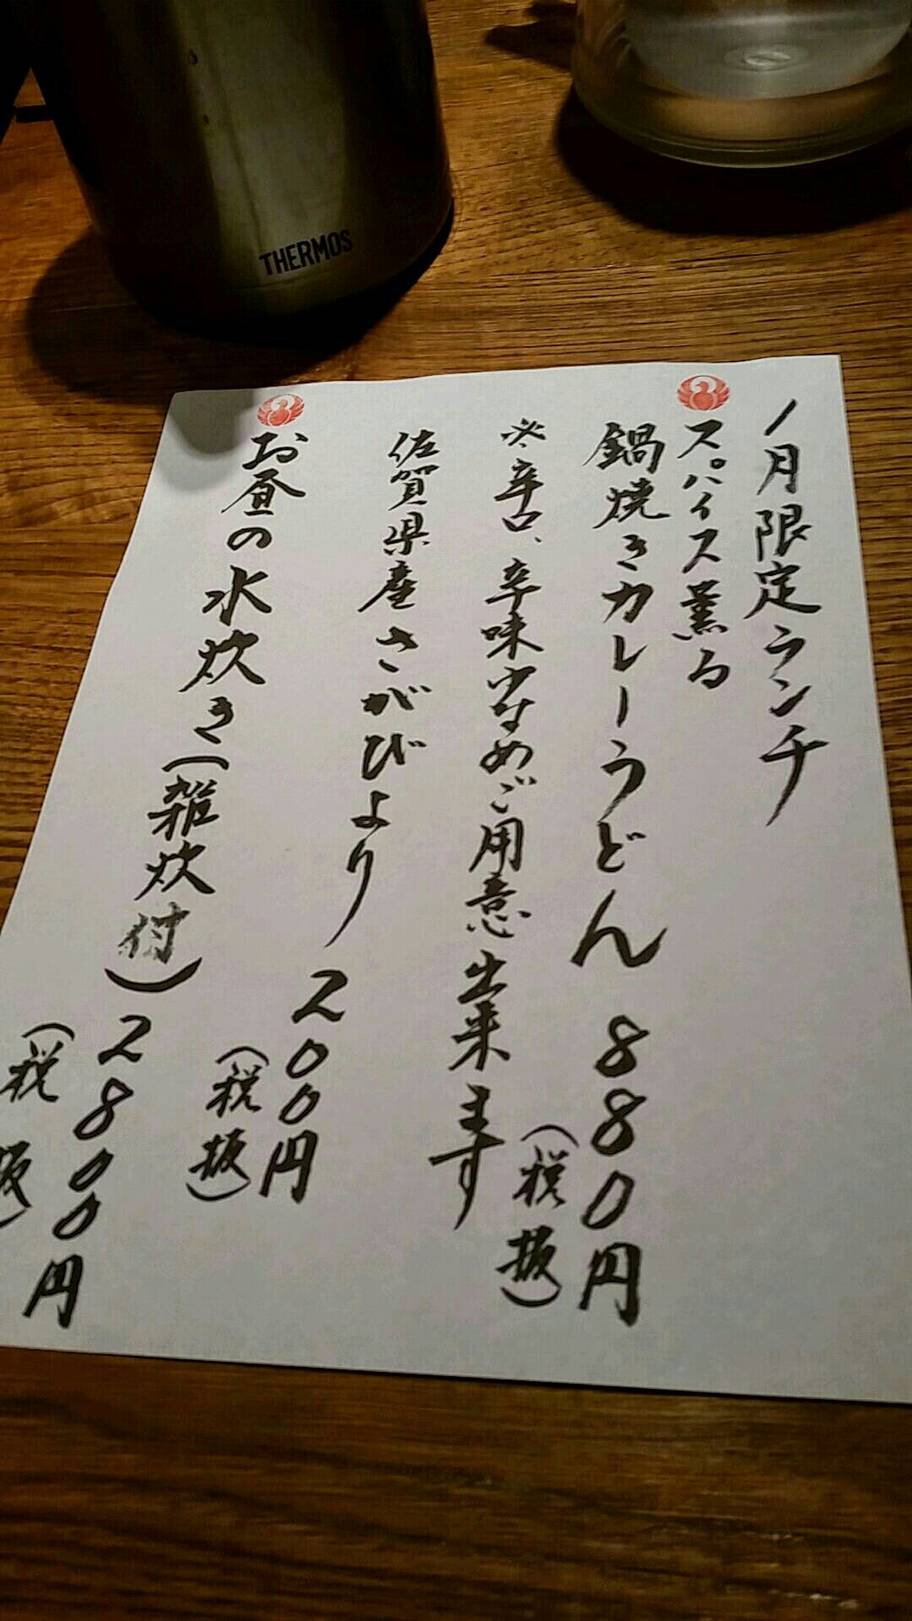 THERMOS
1月限定ランチ
スパイス薫る
鍋焼きカレーうどん 880円
(税抜)
※辛口、辛味少なめご用意出来ます
佐賀県産さがびより 200円
(税抜)
お昼の水炊き(雑炊付) 2800円
(税抜)